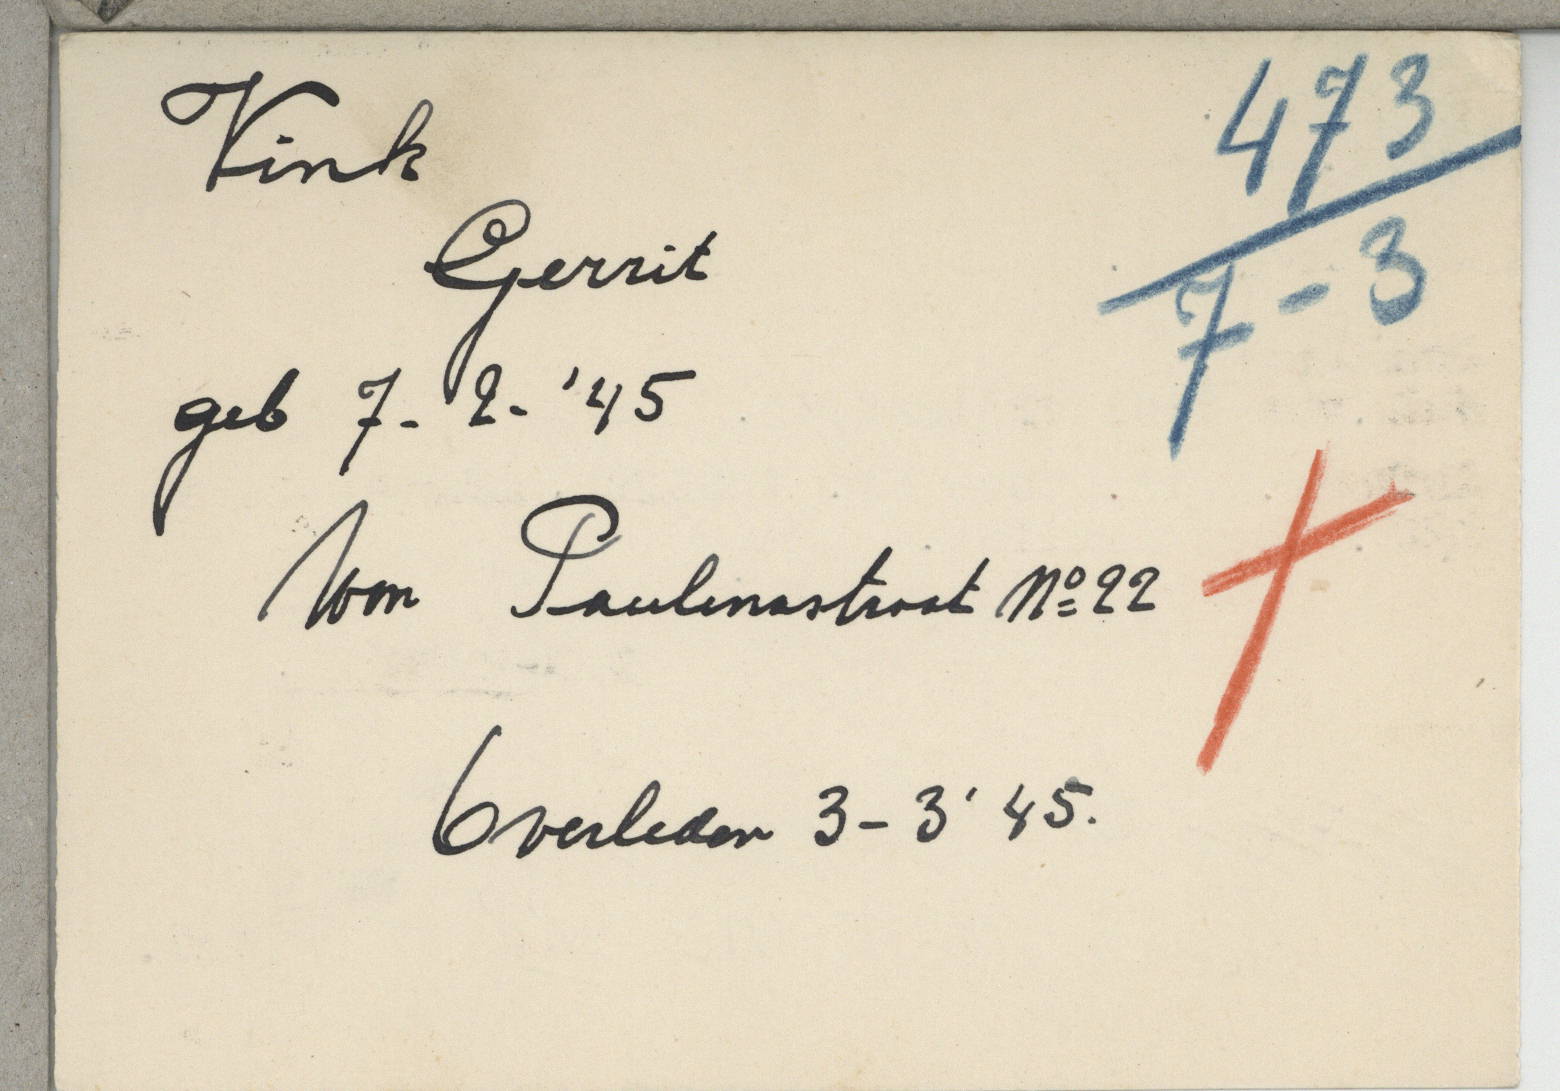 Vink
473
Gerrit
7-3
geb 7-2-'45
Won Paulinastraat No 22
Overleden 3-3'45.